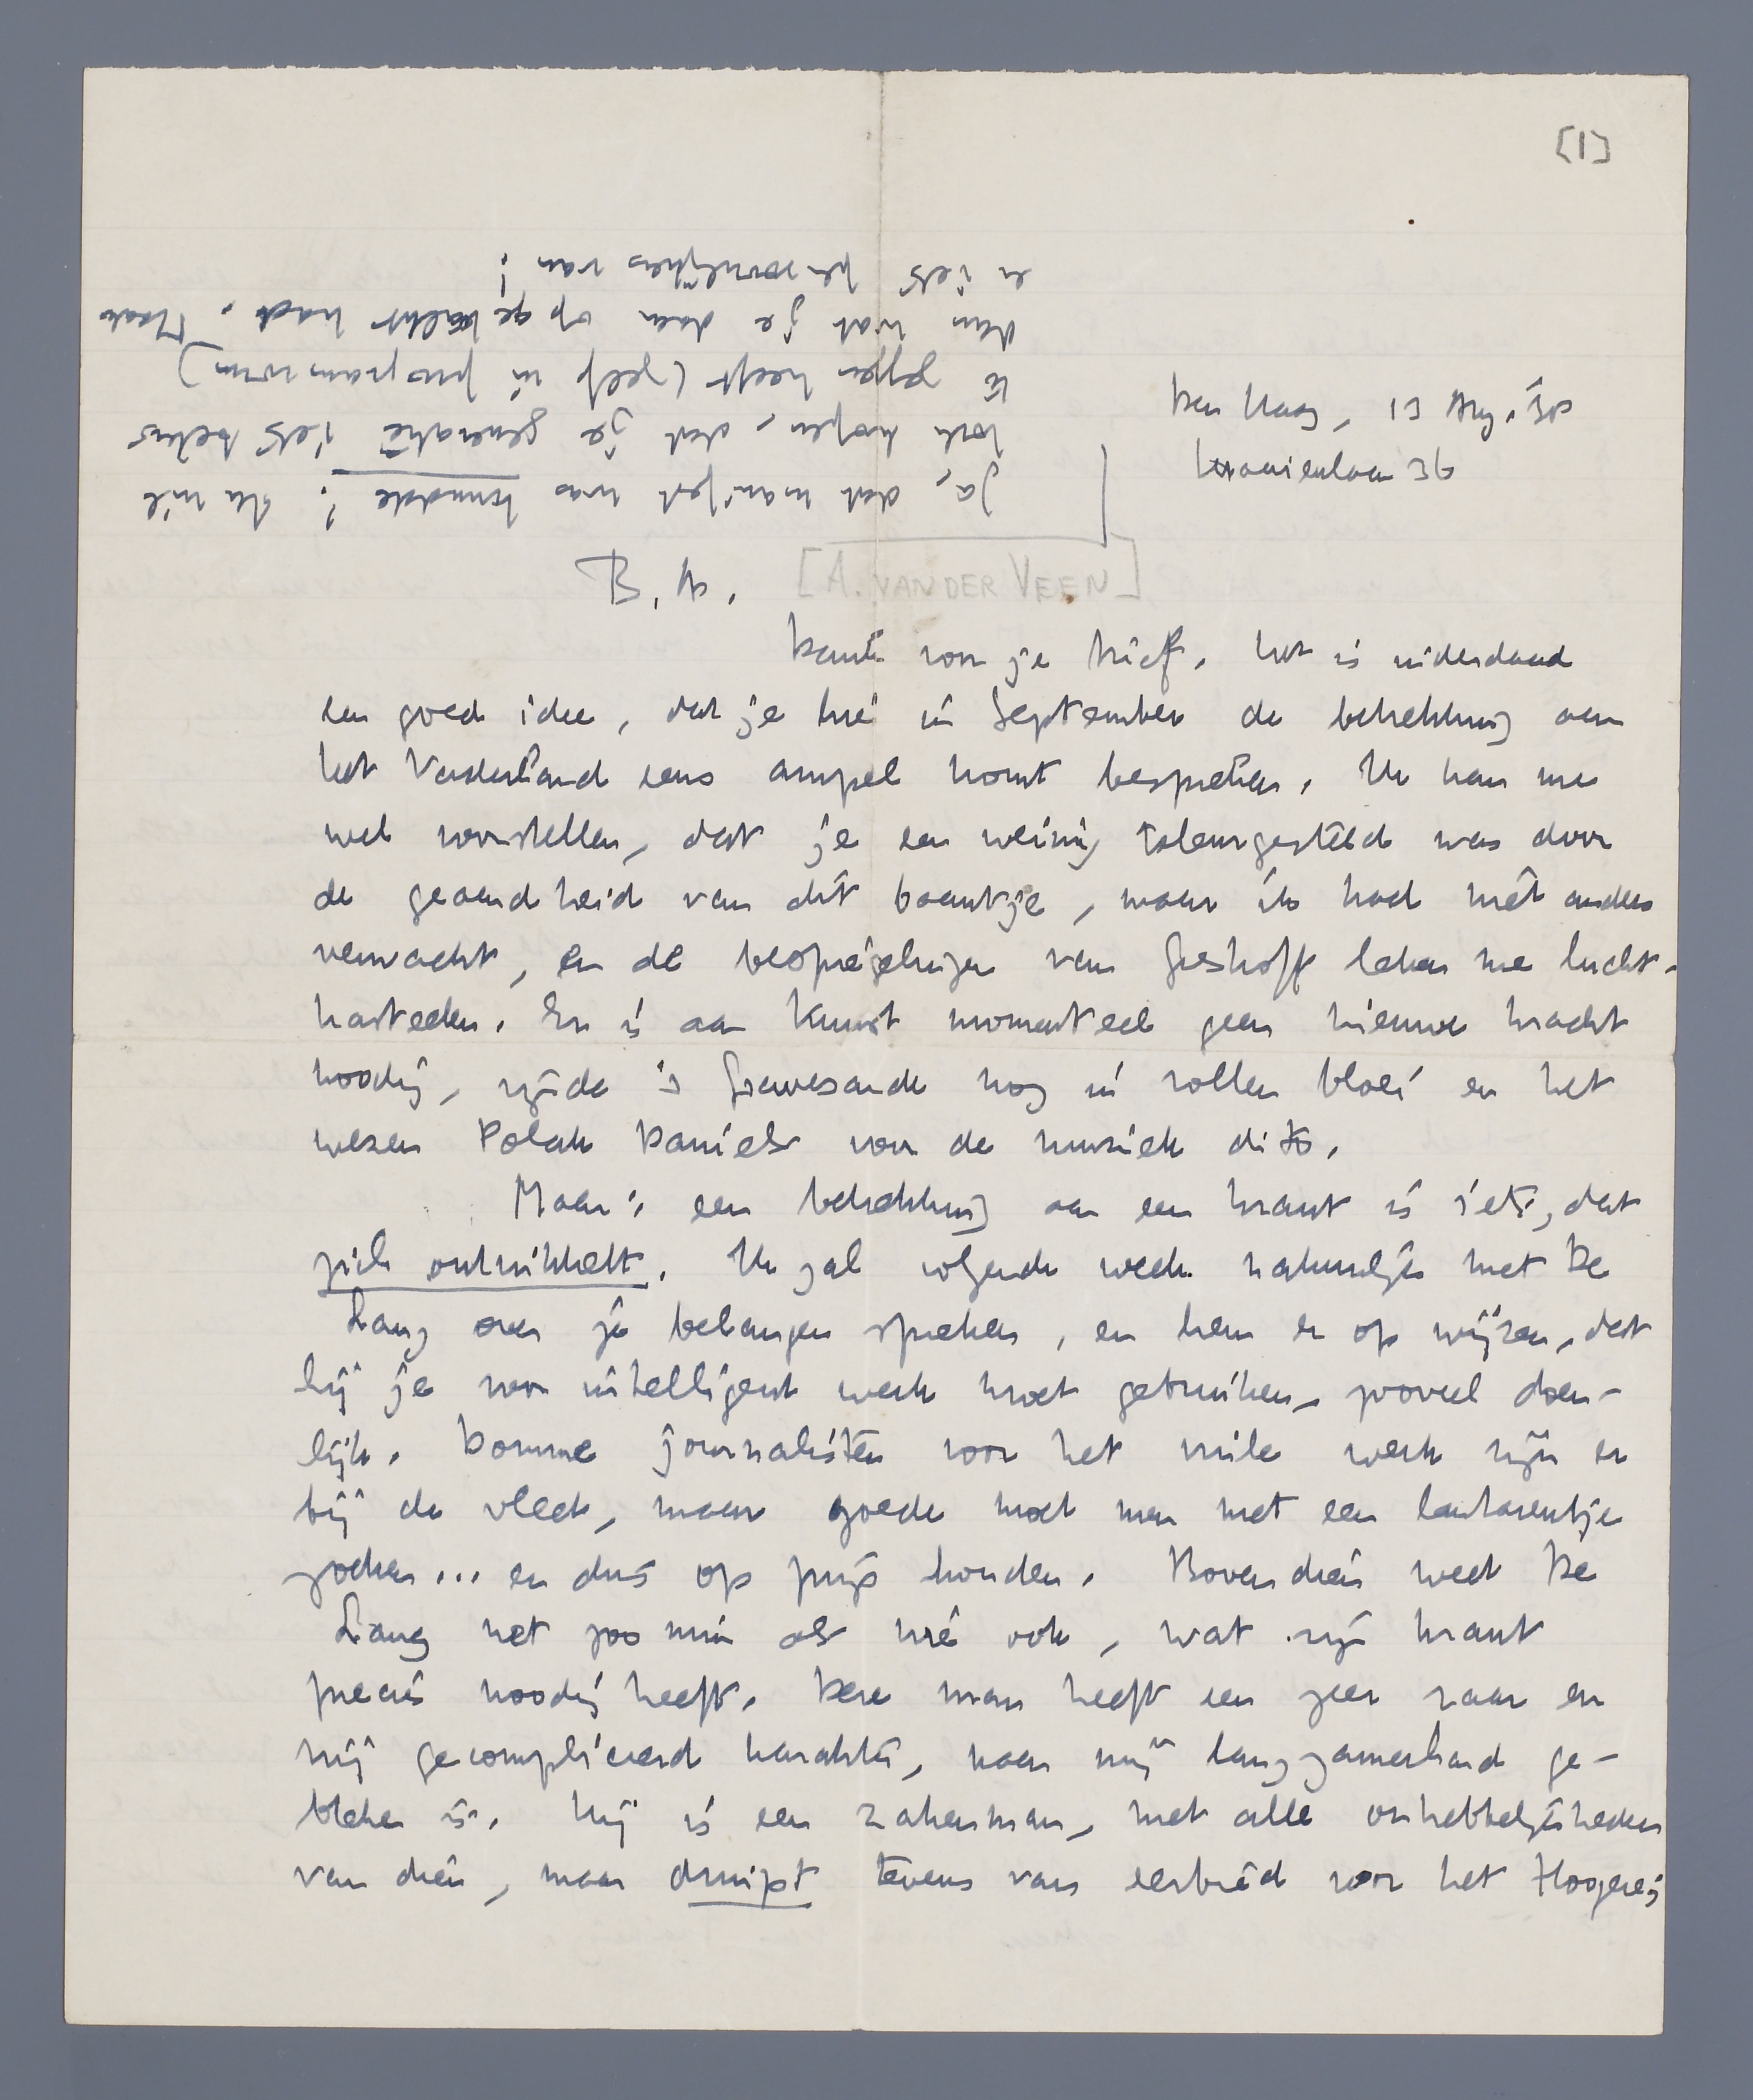 [1]
Den Haag, 13 Aug. '38
Kraaienlaan 36
B. A. [A. VAN DER VEEN]
Dank voor je brief. Het is inderdaad
een goed idee, dat je hier in September de betrekking aan
het Vaderland eens ampel komt bespreken. Ik kan me
wel voorstellen, dat je een weinig teleurgesteld was door
de geaardheid van dit baantje, maar ik had niet anders
verwacht, en de bespiegelingen van Greshoff leken me lucht-
kasteelen. Er is aan Kunst momenteel geen nieuwe kracht
noodig, zijnde 's Gravesande nog in vollen bloei en het
wezen Polak Daniels voor de muziek dito.
Maar: een betrekking aan een krant is iets, dat
zich ontwikkelt. Ik zal volgende week natuurlijk met De
Lang over je belangen spreken, en hem er op wijzen, dat
hij je voor intelligent werk moet gebruiken, zooveel doen-
lijk. Domme journalisten voor het vuile werk zijn er
bij de vleet, maar goede moet men met een lantarentje
zoeken... en dus op prijs houden. Bovendien weet De
Lang net zoo min als wie ook, wat zijn krant
precies noodig heeft. Deze man heeft een zeer raar en
vrij gecompliceerd karakter, naar mij langzamerhand ge-
bleken is. Hij is een zakenman, met alle onhebbelijkheden
van dien, maar druipt tevens van eerbied voor het Hoogere;
Ja, dat manifest was kundde! Ik wil
toch hopen, dat je generatie iets beters
te geffen heeft (zelf in programvorm)
dan wat je daar op gekalkt had. Maak
er iets persoonlijkers van!